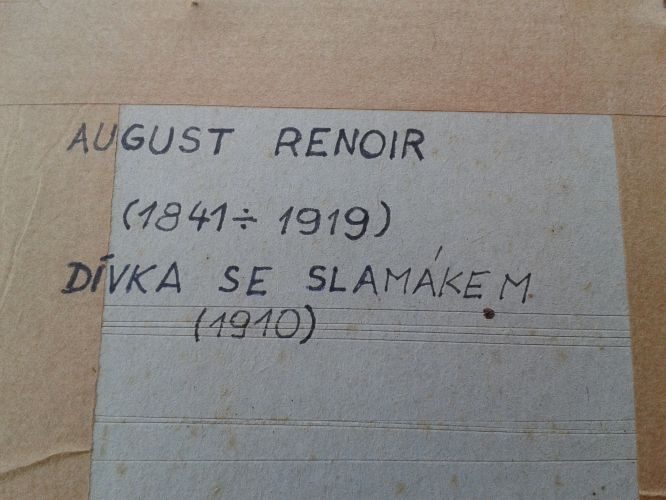 AUGUST RENOIR
(1841÷1919)
DÍVKA SE SLAMÁKEM
(1910)